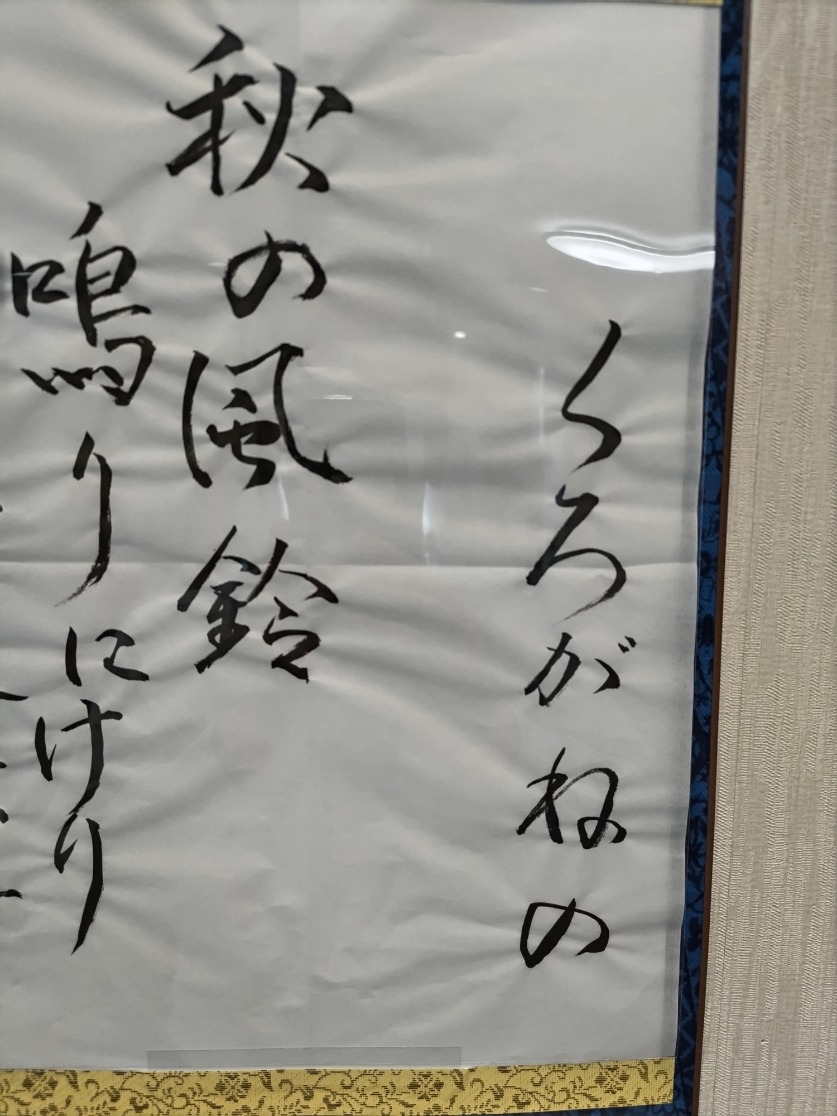 くろがねの
秋の風鈴
鳴りにけり